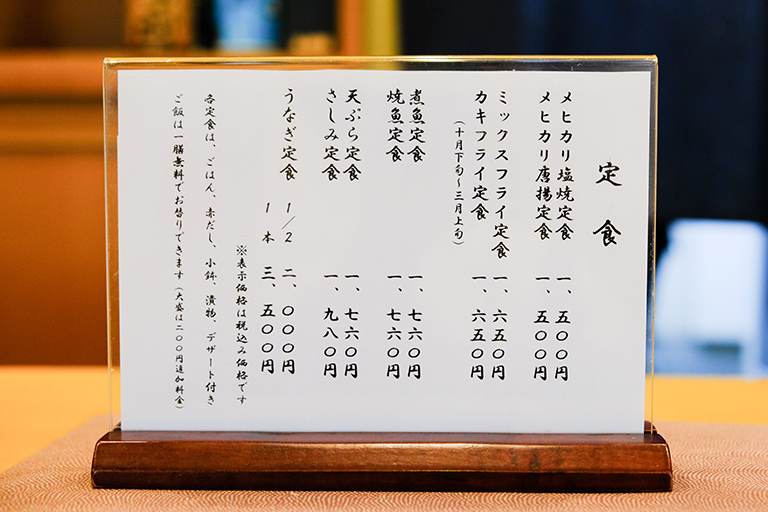 定食
メヒカリ塩焼定食 一、五〇〇円
メヒカリ唐揚定食 一、五〇〇円
ミックスフライ定食 一、六五〇円
カキフライ定食 一、六五〇円
(十月下旬〜三月上旬)
煮魚定食 一、七六〇円
焼魚定食 一、七六〇円
天ぷら定食 一、七六〇円
さしみ定食 一、九八〇円
うなぎ定食 1/2 二、〇〇〇円
1本 三、五〇〇円
※表示価格は税込み価格です
各定食は、ごはん、赤だし、小鉢、漬物、デザート付き
ご飯は一膳無料でお替りできます(大盛は二〇〇円追加料金)